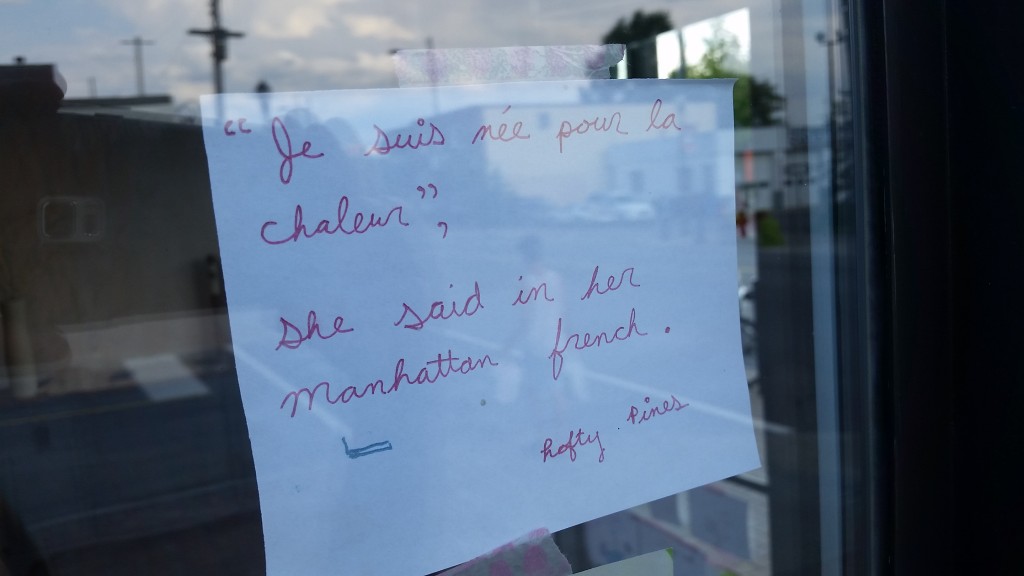 “Je suis née pour la
chaleur”,
she said in her
manhattan french.
hofty. Pines